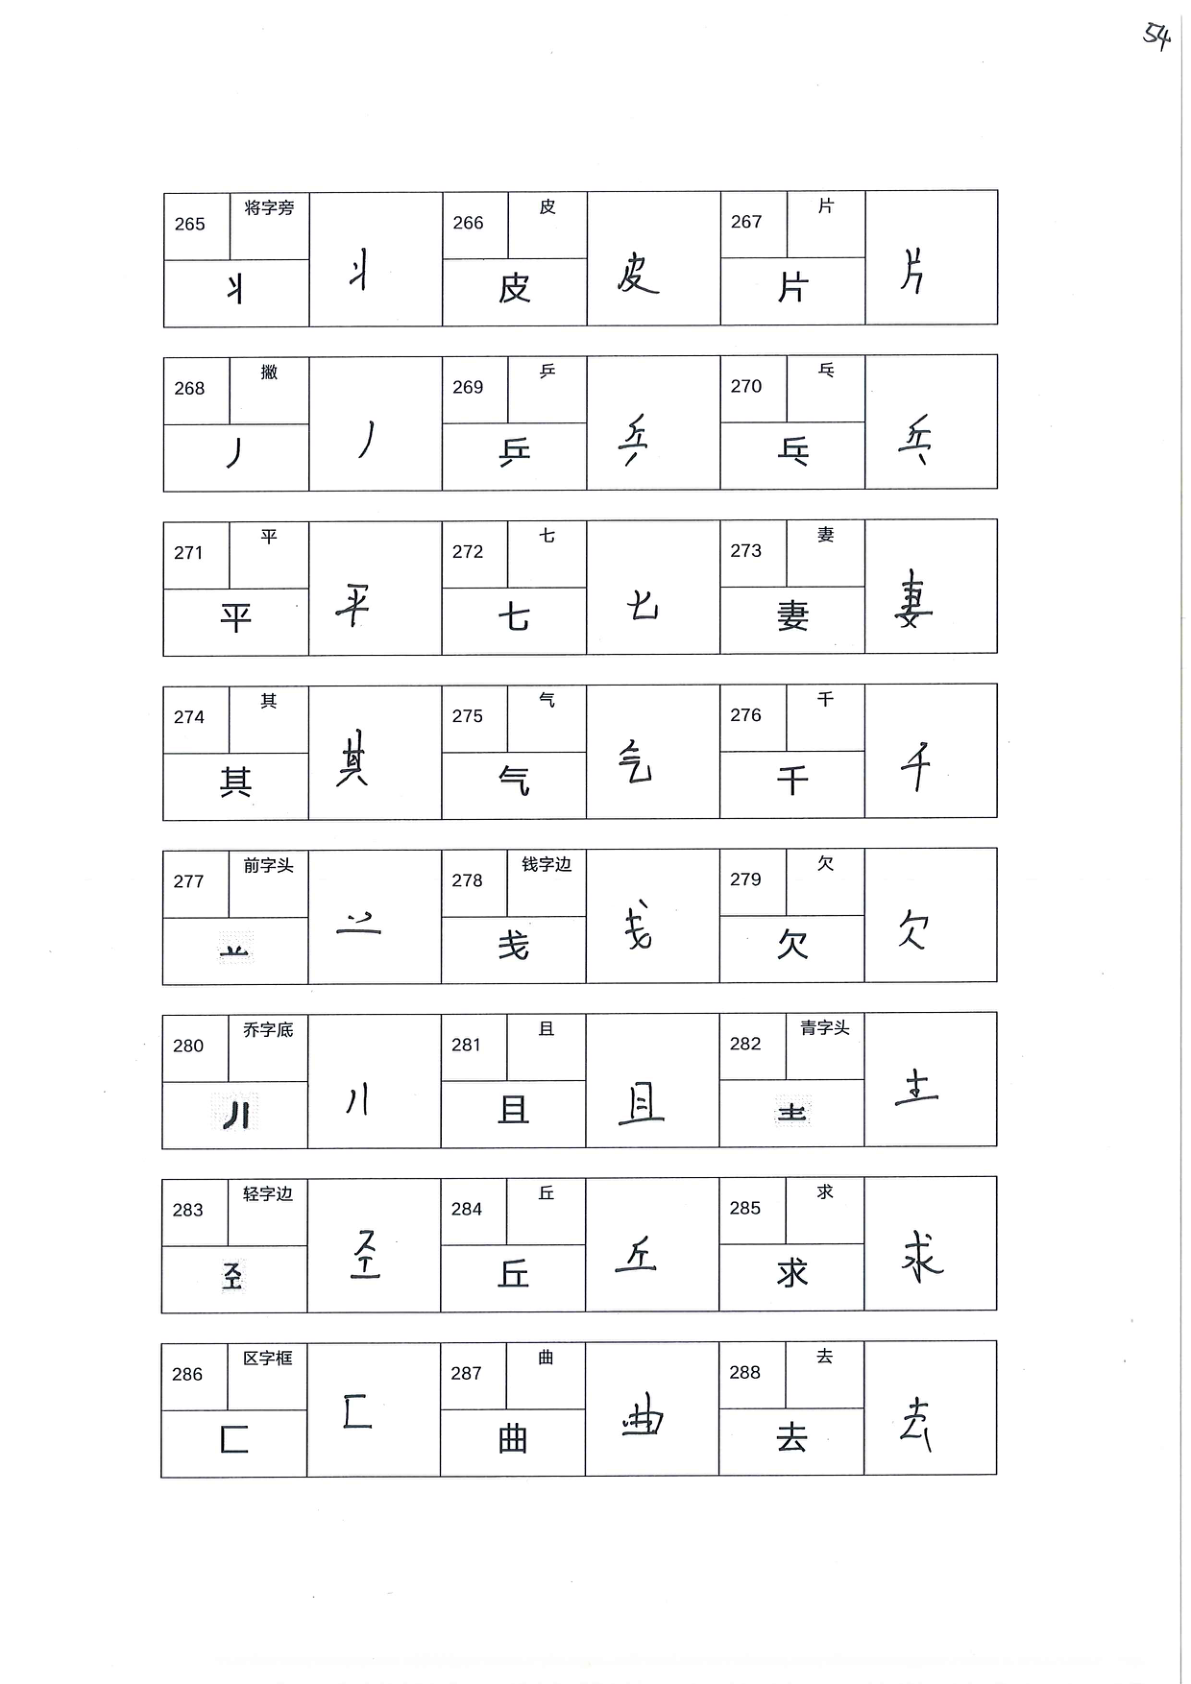 54
265 将字旁 丬 丬 266 皮 皮 皮 267 片 片 片
268 撇 丿 丿 269 乒 乒 乒 270 乓 乓 乓
271 平 平 平 272 七 七 七 273 妻 妻 妻
274 其 其 其 275 气 气 气 276 千 千 千
277 前字头 䒑 䒑 278 钱字边 戋 戋 279 欠 欠 欠
280 乔字底 丿丨 丿丨 281 且 且 且 282 青字头 龶 土
283 轻字边 𢀖 𢀖 284 丘 丘 丘 285 求 求 求
286 区字框 匚 匚 287 曲 曲 曲 288 去 去 去